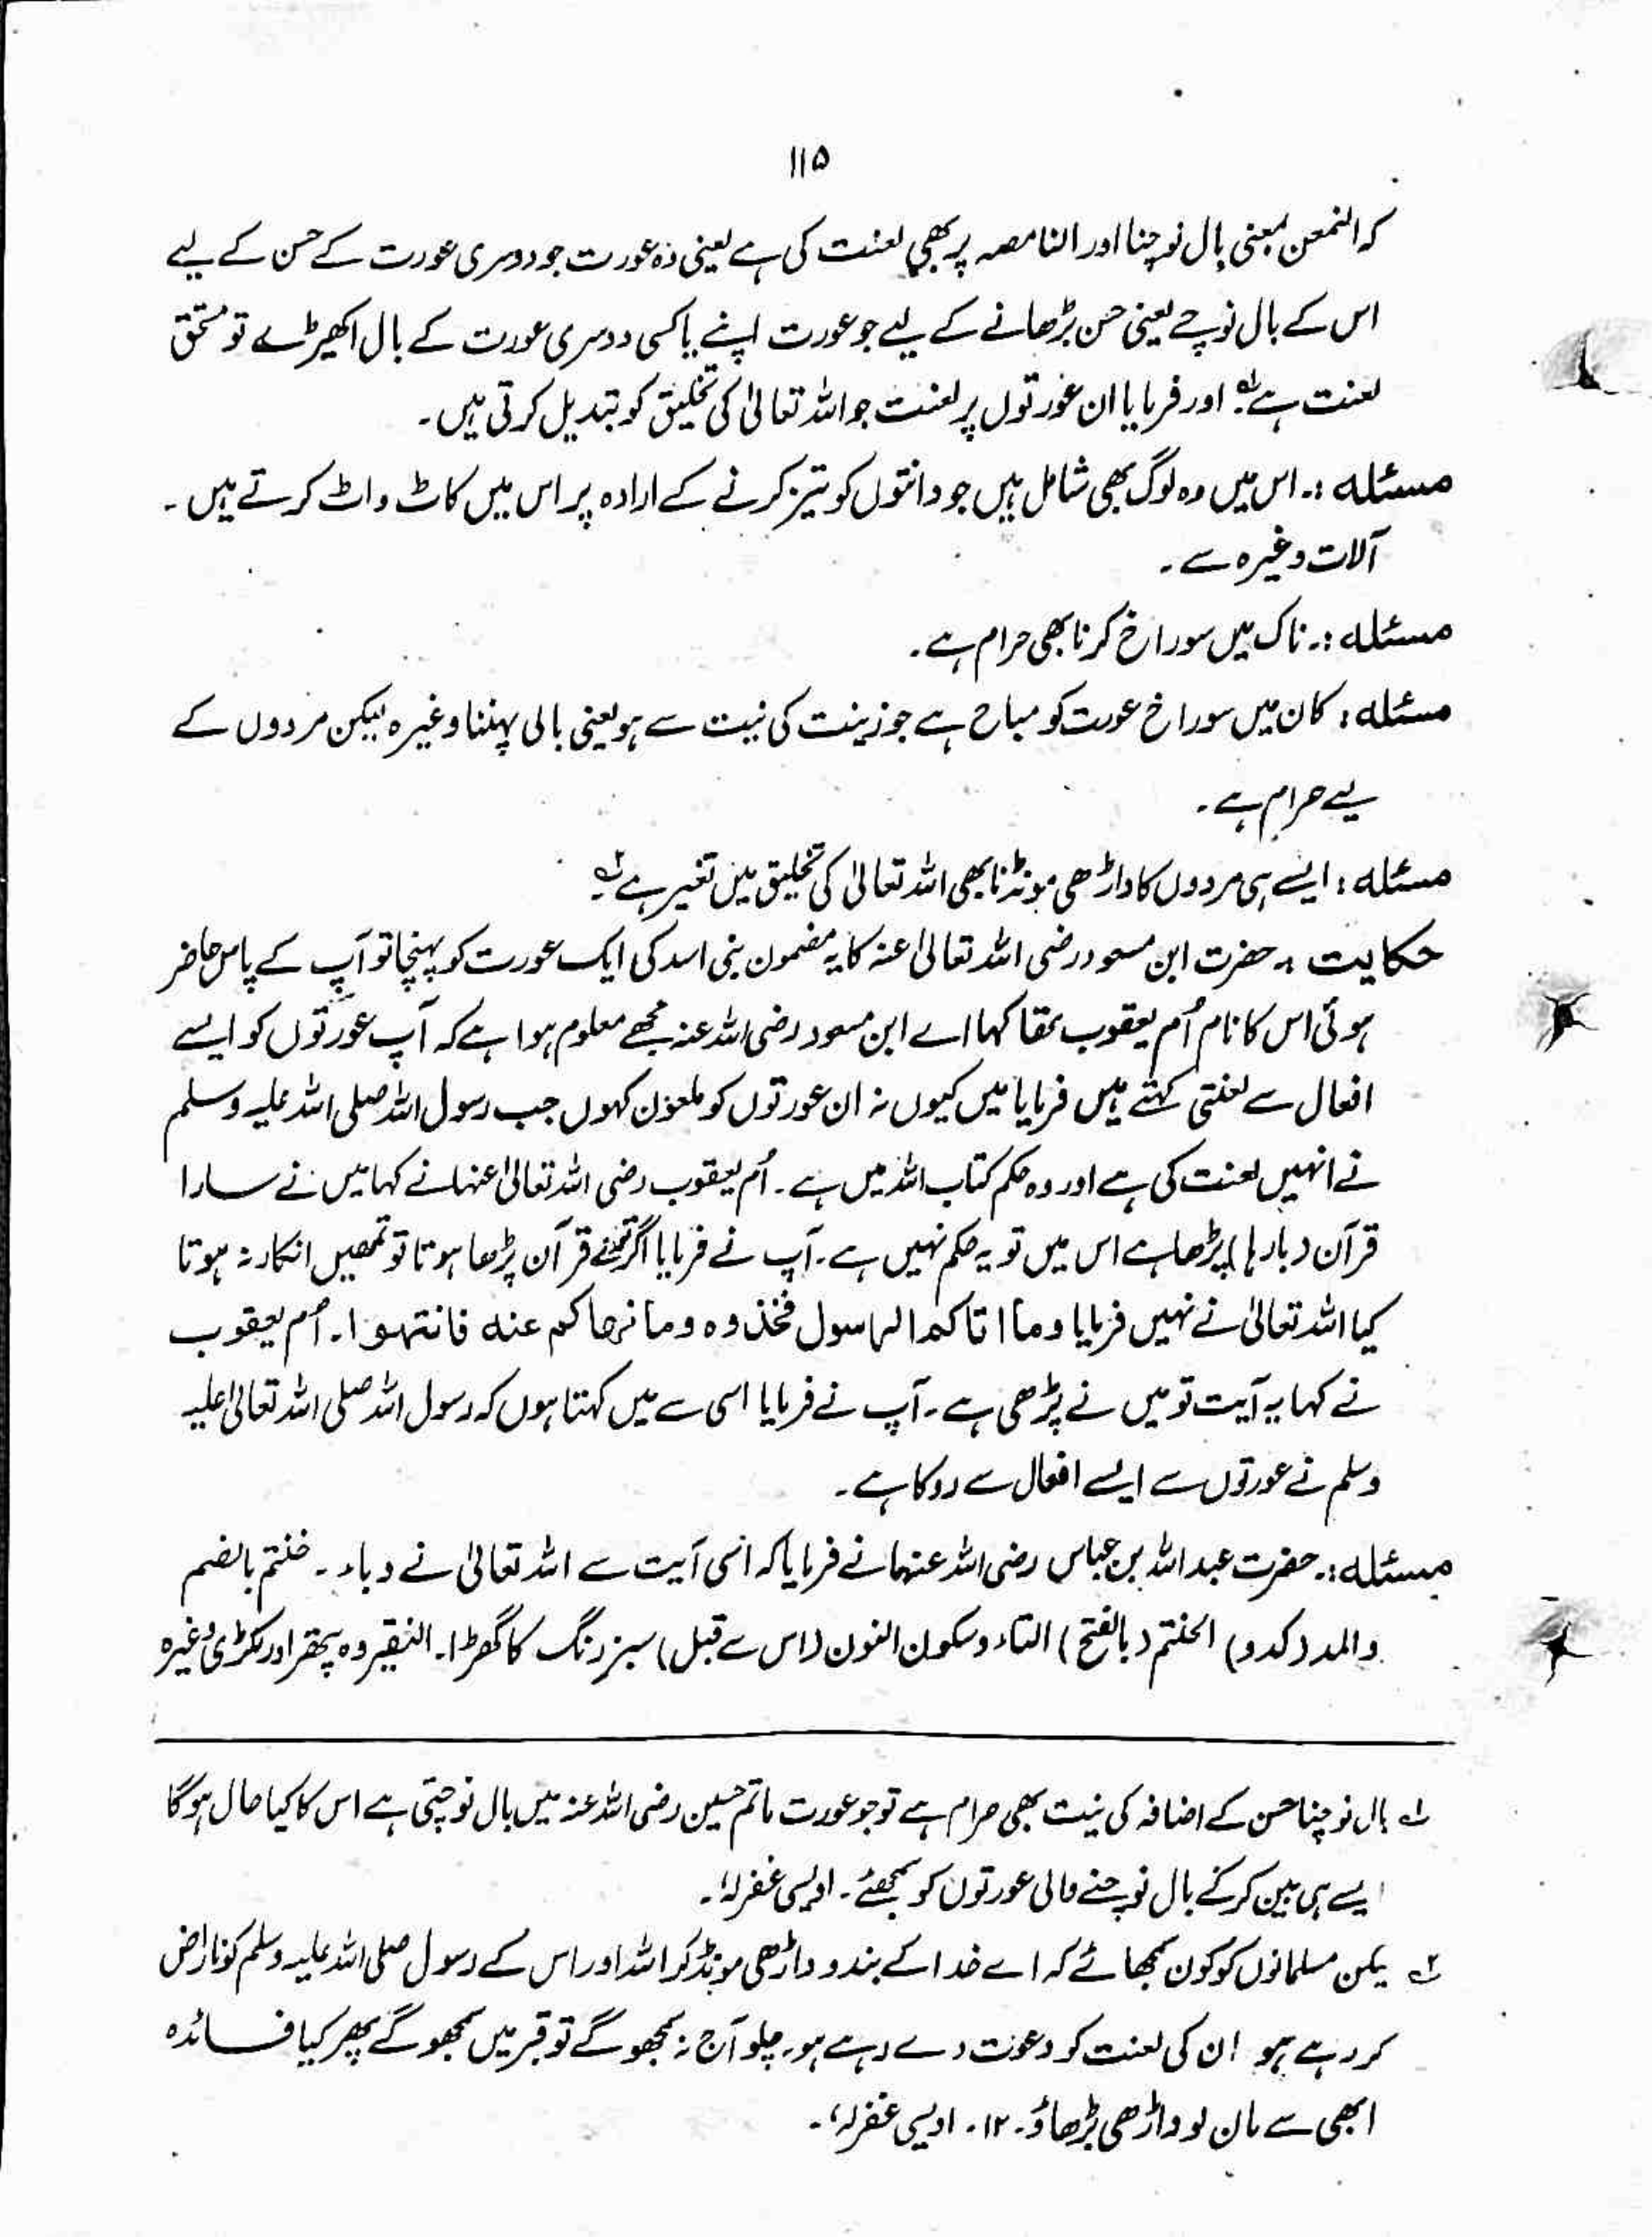 ۱۱۵
کہ النمص بمعنی بال نوچنا اور النامصہ پر بھی لعنت کی ہے یعنی وہ عورت جو دوسری عورت کے حسن کے لیے
اس کے بال نوچے یعنی حسن بڑھانے کے لیے جو عورت اپنے یا کسی دوسری عورت کے بال اکھیڑے تو مستحق
لعنت ہے۔ؔ۱ اور فرمایا ان عورتوں پر لعنت جو اللہ تعالیٰ کی تخلیق کو تبدیل کرتی ہیں۔
مسئلہ :۔ اس میں وہ لوگ بھی شامل ہیں جو دانتوں کو تیز کرنے کے ارادہ پر اس میں کاٹ واٹ کرتے ہیں۔
آلات وغیرہ سے۔
مسئلہ :۔ ناک میں سوراخ کرنا بھی حرام ہے۔
مسئلہ : کان میں سوراخ عورت کو مباح ہے جو زینت کی نیت سے ہو یعنی بالی پہننا وغیرہ لیکن مردوں کے
لیے حرام ہے۔
مسئلہ : ایسے ہی مردوں کا داڑھی مونڈنا بھی اللہ تعالیٰ کی تخلیق میں تغیر ہے۔۲
حکایت ۔ حضرت ابن مسعود رضی اللہ تعالیٰ عنہ کا یہ مضمون بنی اسد کی ایک عورت کو پہنچا تو آپ کے پاس حاضر
ہوئی اس کا نام اُم یعقوب تھا کہا اے ابن مسعود رضی اللہ عنہ مجھے معلوم ہوا ہے کہ آپ عورتوں کو ایسے
افعال سے لعنتی کہتے ہیں فرمایا میں کیوں نہ ان عورتوں کو ملعون کہوں جب رسول اللہ صلی اللہ علیہ وسلم
نے انہیں لعنت کی ہے اور وہ حکم کتاب اللہ میں ہے۔ اُم یعقوب رضی اللہ تعالیٰ عنہا نے کہا میں نے سارا
قرآن (بارہا) پڑھا ہے اس میں تو یہ حکم نہیں ہے۔ آپ نے فرمایا اگر تم نے قرآن پڑھا ہوتا تو تمھیں انکار نہ ہوتا
کیا اللہ تعالیٰ نے نہیں فرمایا وما اتاکم الرسول فخذوہ وما نہاکم عنہ فانتہوا۔ اُم یعقوب
نے کہا یہ آیت تو میں نے پڑھی ہے۔ آپ نے فرمایا اسی سے میں کہتا ہوں کہ رسول اللہ صلی اللہ تعالیٰ علیہ
وسلم نے عورتوں سے ایسے افعال سے روکا ہے۔
مسئلہ :۔ حضرت عبداللہ بن عباس رضی اللہ عنہما نے فرمایا کہ اسی آیت سے اللہ تعالیٰ نے دباء۔ خنتم بالضم
والمد (کدو) الحنتم (بالفتح) التاء وسکون النون (اس سے قبل) سبز رنگ کا گھڑا۔ النقیر وہ پتھر اور لکڑی وغیرہ
۱ بال نوچنا حسن کے اضافہ کی نیت بھی حرام ہے تو جو عورت ماتم حسین رضی اللہ عنہ میں بال نوچتی ہے اس کا کیا حال ہوگا
ایسے ہی بین کرکے بال نوچنے والی عورتوں کو سمجھئے۔ اویسی غفرلہٗ۔
۲ لیکن مسلمانوں کو کون سمجھائے کہ اے خدا کے بندو داڑھی مونڈ کر اللہ اور اس کے رسول صلی اللہ علیہ وسلم کو ناراض
کر رہے ہو ان کی لعنت کو دعوت دے رہے ہو۔ چلو آج نہ سمجھو گے تو قبر میں سمجھو گے پھر کیا فائدہ
ابھی سے مان لو داڑھی بڑھاؤ۔ ۱۲۔ اویسی غفرلہٗ۔